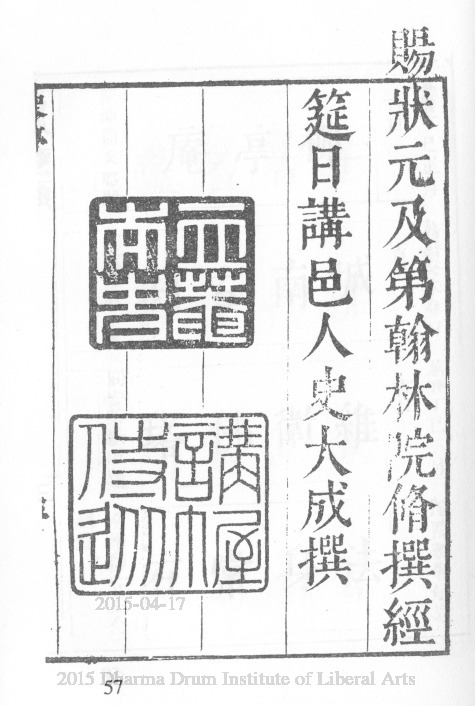 賜狀元及第翰林院脩撰經
筵日講邑人史大成撰
講幄
侍
2015-04-17
57
2015 Dharma Drum Institute of Liberal Arts